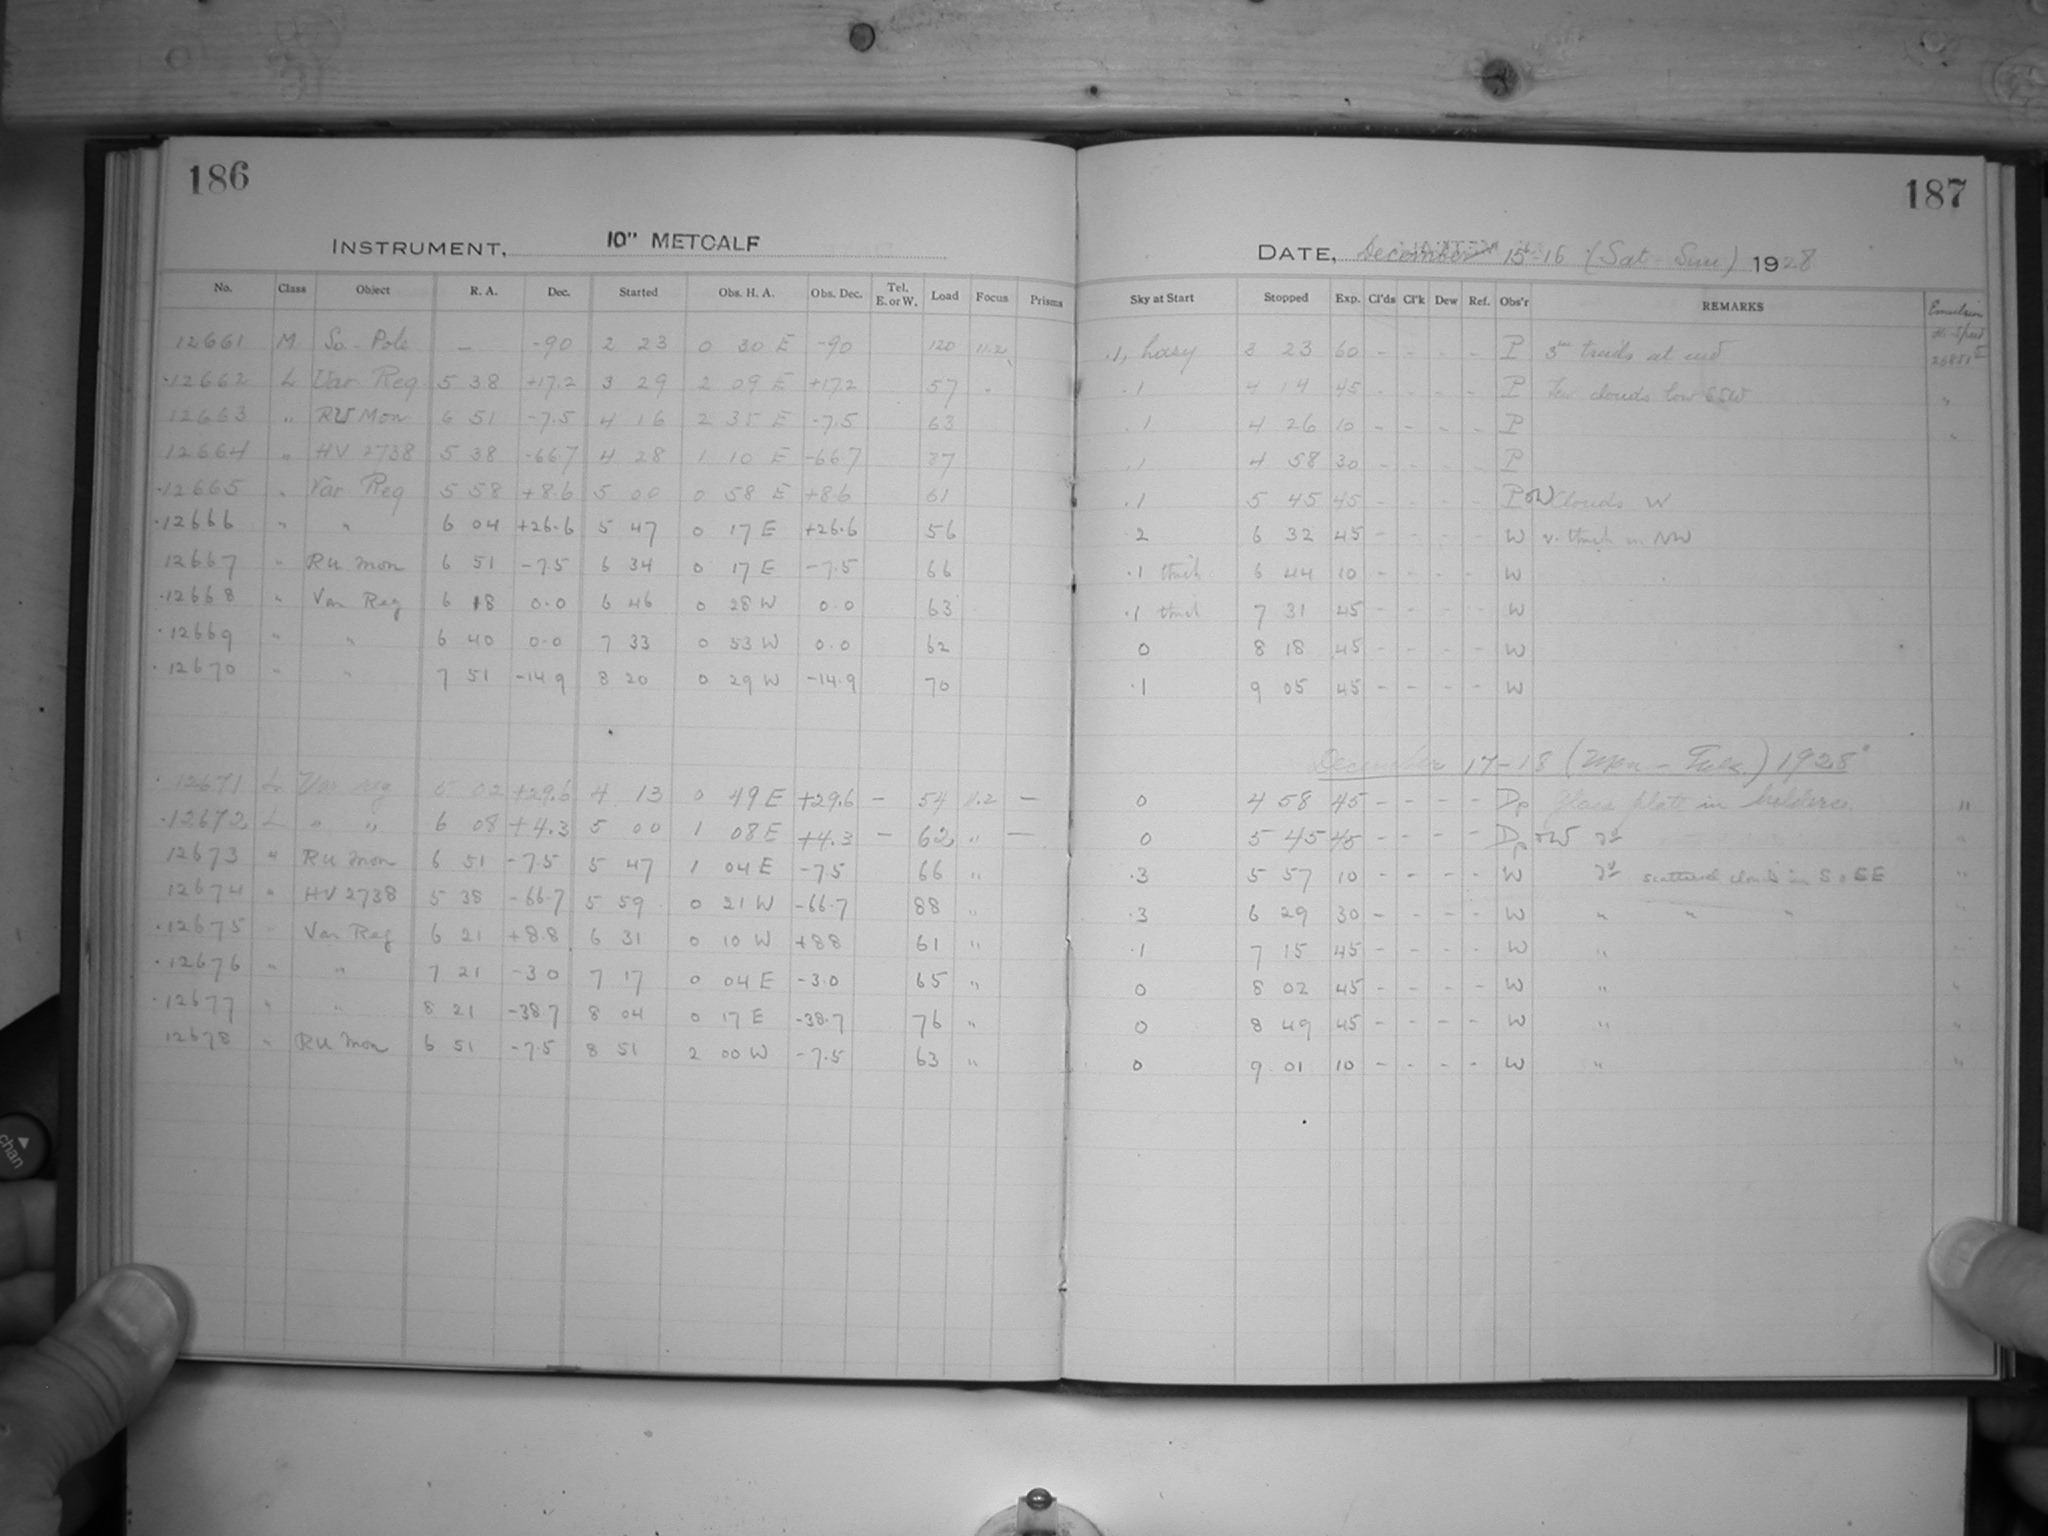 186
187
INSTRUMENT, 10" METCALF
DATE, December 15-16 (Sat - Sun) 1928
No. Class Object R. A. Dec. Started Obs. H. A. Obs. Dec. Tel. E. or W. Load Focus Prisms Sky at Start Stopped Exp. Cl'ds Cl'k Dew Ref. Obs'r REMARKS Emulsion
12661 M So. Pole — -90 2 23 0 30 E -90 120 11.2 .1, hazy 3 23 60 - - - - P 3 at end
12662 L Var Reg 5 38 +17.2 3 29 2 09 E +17.2 57 " .1 4 14 45 - - - - P Few clouds low SSW "
12663 " RU Mon 6 51 -7.5 4 16 2 35 E -7.5 63 .1 4 26 10 - - - - P "
12664 " HV 2738 5 38 -66.7 4 28 1 10 E -66.7 87 .1 4 58 30 - - - - P
12665 " Var Reg 5 58 +8.6 5 00 0 58 E +8.6 61 .1 5 45 45 - - - - P W Clouds W
12666 " " 6 04 +26.6 5 47 0 17 E +26.6 56 .2 6 32 45 - - - - W v. thick in NW
12667 " RU Mon 6 51 -7.5 6 34 0 17 E -7.5 66 .1 thick 6 44 10 - - - - W
12668 " Var Reg 6 18 0.0 6 46 0 28 W 0.0 63 .1 thick 7 31 45 - - - - W
12669 " " 6 40 0.0 7 33 0 53 W 0.0 62 0 8 18 45 - - - - W
12670 " " 7 51 -14.9 8 20 0 29 W -14.9 70 .1 9 05 45 - - - - W
December 17-18 (Mon - Tues.) 1928
12671 L Var reg 5 02 +29.6 4 13 0 49 E +29.6 — 54 11.2 — 0 4 58 45 - - - - Dp Glass plate in holder "
12672 L " " 6 08 +4.3 5 00 1 08 E +4.3 — 62 " — 0 5 45 45 - - - - Dp W "
12673 " RU Mon 6 51 -7.5 5 47 1 04 E -7.5 66 " .3 5 57 10 - - - - W scattered clouds in S & SE "
12674 " HV 2738 5 38 -66.7 5 59 0 21 W -66.7 88 " .3 6 29 30 - - - - W " " " "
12675 " Var Reg 6 21 +8.8 6 31 0 10 W +8.8 61 " .1 7 15 45 - - - - W " "
12676 " " 7 21 -3.0 7 17 0 04 E -3.0 65 " 0 8 02 45 - - - - W " "
12677 " " 8 21 -38.7 8 04 0 17 E -38.7 76 " 0 8 49 45 - - - - W " "
12678 " RU Mon 6 51 -7.5 8 51 2 00 W -7.5 63 " 0 9 01 10 - - - - W " "
chan